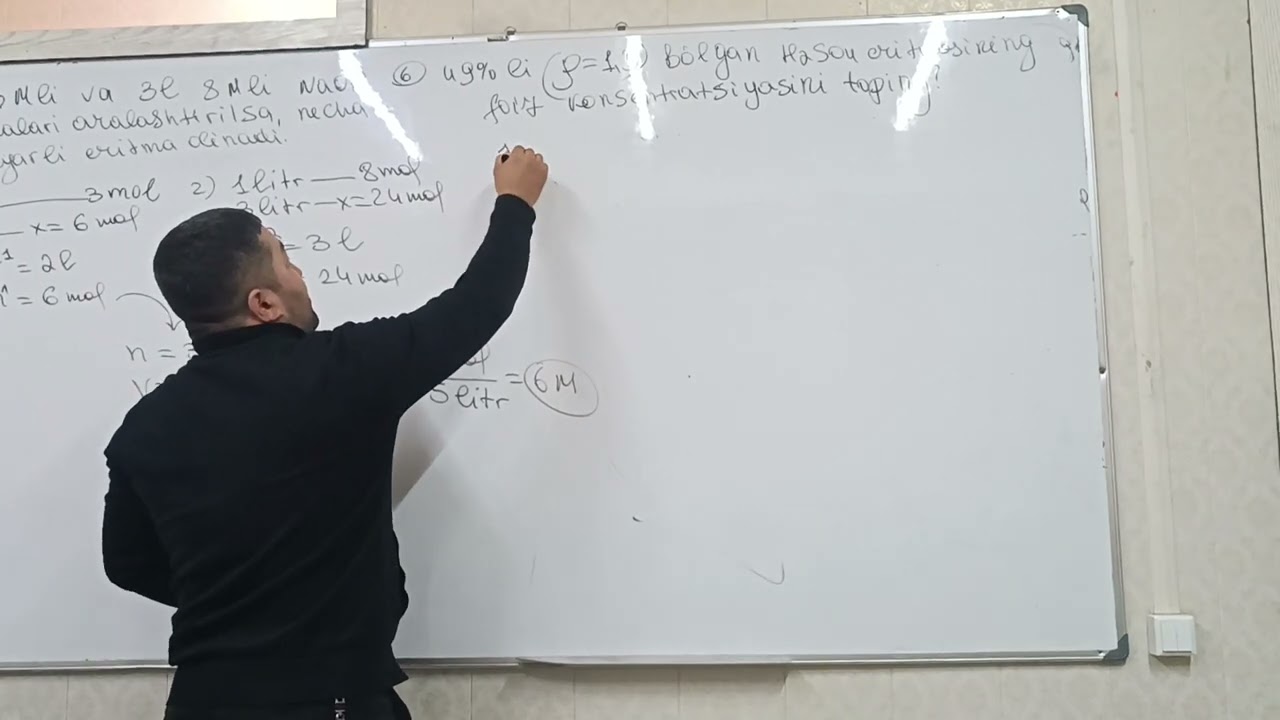 Mli va 3l 8Mli
alari aralashtirilsa, necha
yarli eritma olinadi.
3mol
x=6mol
= 2l
= 6mol
n =
2) 1litr — 8mol
3litr — x=24mol
= 3l
24mol
5litr = 6M
6 49% li (ρ=1, bo'lgan H2SO4 eritmasining
foiz konsentratsiyasini toping?